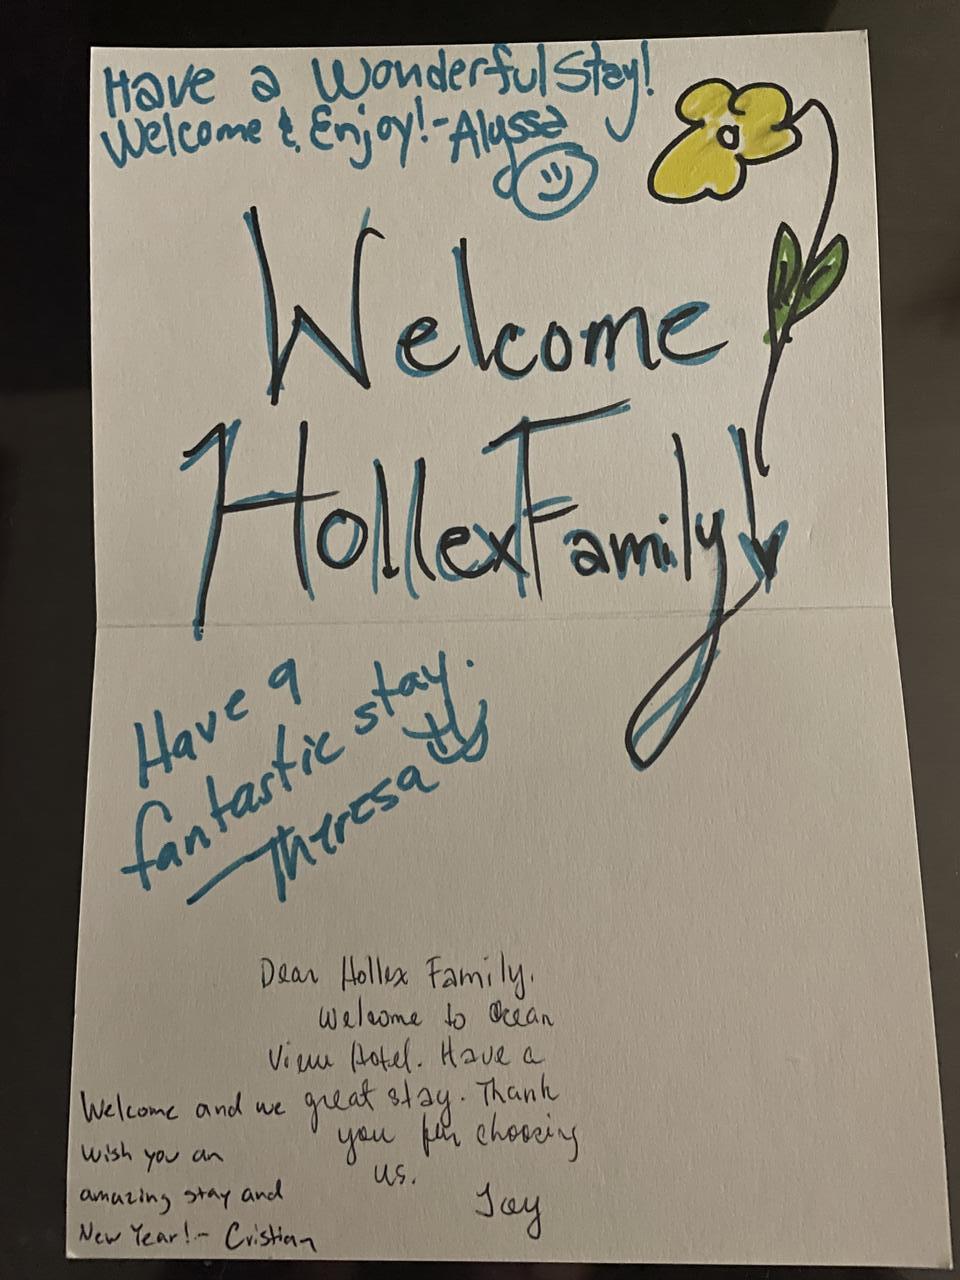 Have a Wonderful Stay!
Welcome & Enjoy! - Alyssa
Welcome
Hollex Family!
Have a
fantastic stay.
— Theresa
Dear Hollex Family,
Welcome to Ocean
View Hotel. Have a
great stay. Thank
you for choosing
us.
Joy
Welcome and we
wish you an
amazing stay and
New Year! - Cristian